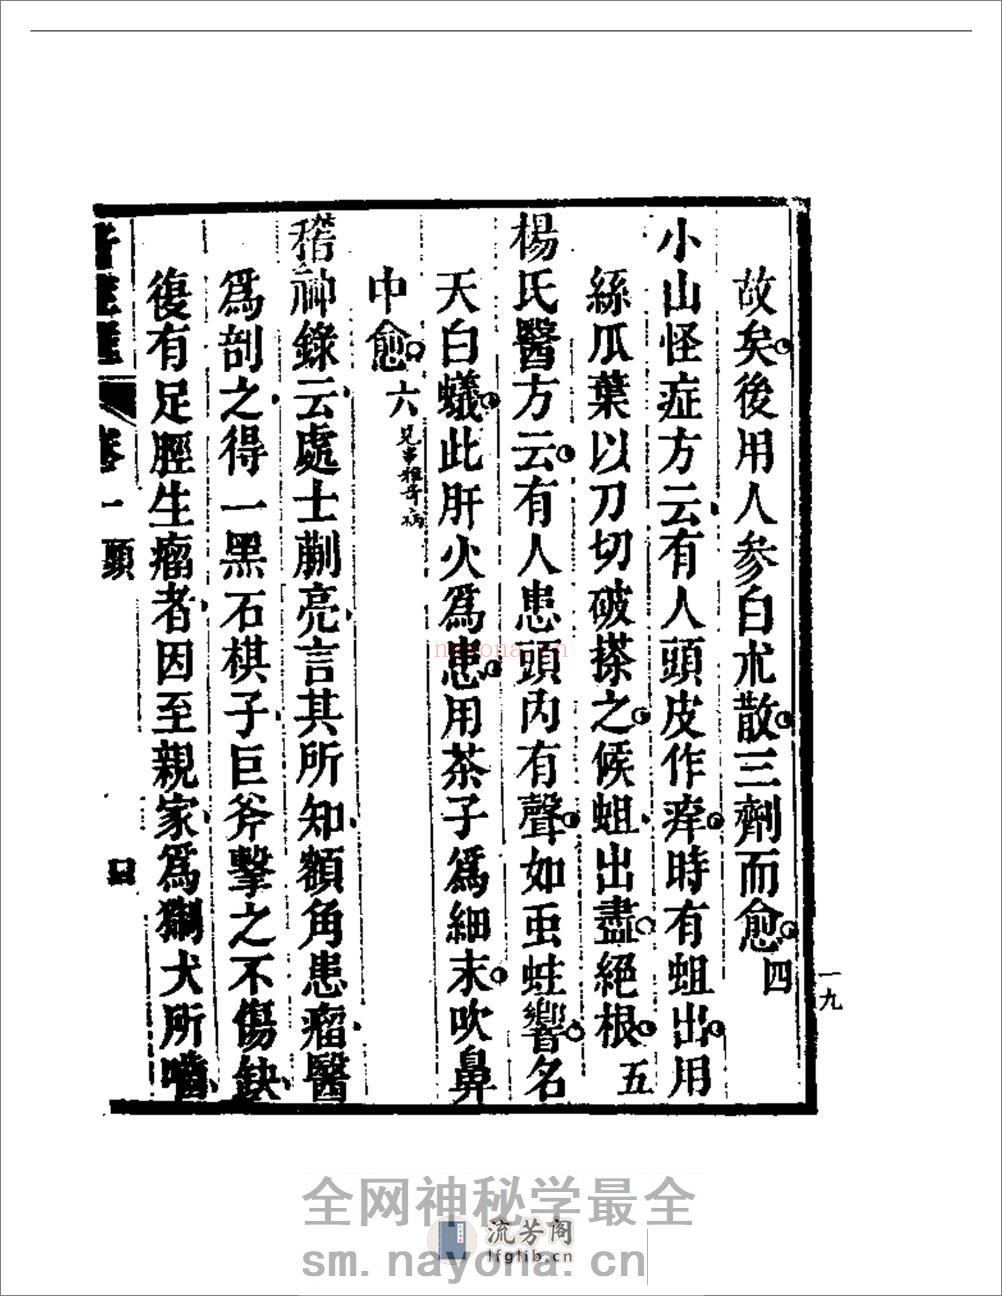 故矣後用人參白朮散三劑而愈 四
小山怪症方云有人頭皮作痒時有蛆出用
絲瓜葉以刀切破搽之候蛆出盡絕根 五
楊氏醫方云有人患頭內有聲如虫蛙響名
天白蟻此肝火為患用茶子為細末吹鼻
中愈 六
稽神錄云處士蒯亮言其所知額角患瘤醫
為剖之得一黑石棋子巨斧擊之不傷缺
復有足脛生瘤者因至親家為猘犬所嚙
卷一 頭
一九
nayona.cn
全网神秘学最全
流芳阁
lfglib.cn
sm.nayona.cn